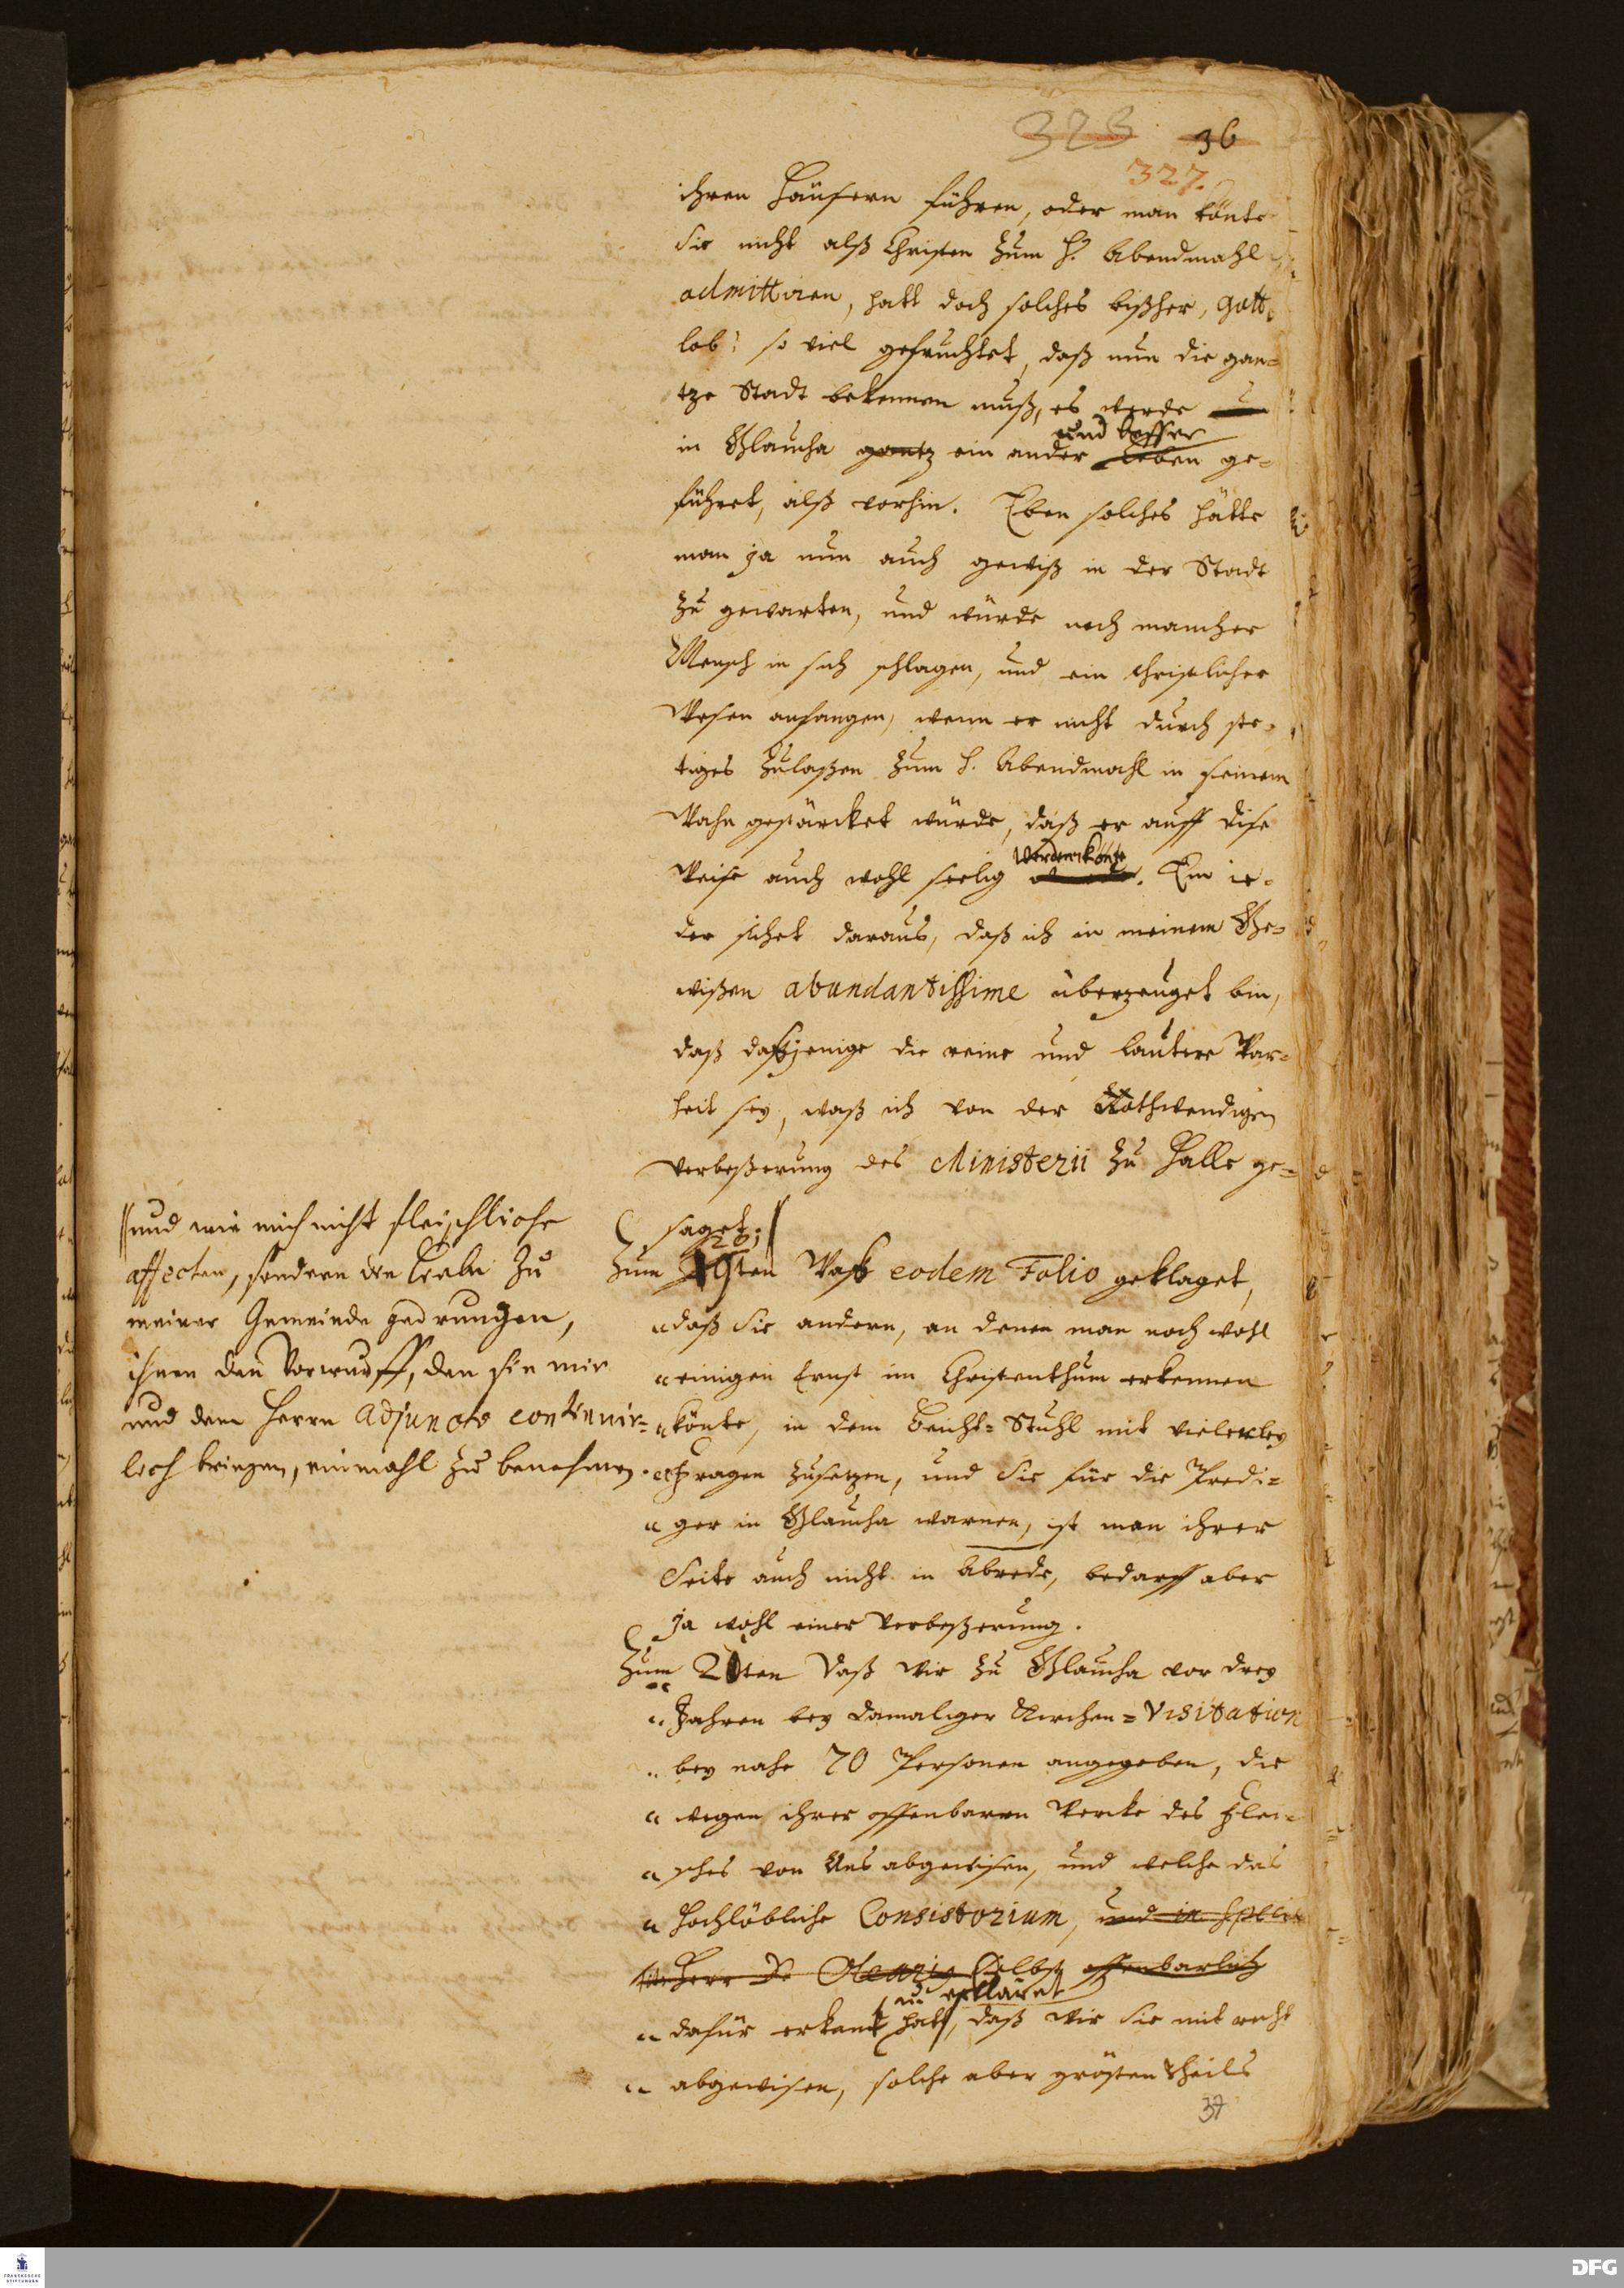 323 36
327.
ihren Häusern führen, oder man könte
Sie nicht alß Christen zum H. Abendmahl
admittiren, hatt doch solches bißher, Gott
lob! so viel gefruchtet, daß nun die gan=
tze Stadt bekennen muß, es werde
und besser
in Glaucha gantz ein ander Leben ge=
führet, alß vorhin. Eben solches hätte
man ja nun auch gewiß in der Stadt
zu gewarten, und würde noch mancher
Mensch in sich schlagen, und ein christlicher
Wesen anfangen, wenn er nicht durch ste=
tiges zulaßen zum H. Abendmahl in seinem
Wahn gestärcket würde, daß er auff dise
werden könte
Weise auch wohl seelig. Ein ie=
der sihet daraus, daß ich in meinem Ge=
wißen abundantissime überzeuget bin,
daß daßjenige die reine und lautere War=
heit sey, waß ich von der Nothwendigen
verbeßerung des Ministerii zu Halle ge=
saget;
Zum 19ten Waß eodem Folio geklaget,
daß Sie andern, an denen man noch wohl
einigen Ernst im Christenthum erkennen
könte, in dem Beicht=Stuhl mit vielerley
Fragen zusetzen, und Sie für die Predi=
ger in Glaucha warnen, ist man ihrer
Seite auch nicht in Abrede, bedarff aber
ja wohl einer verbeßerung.
Zum 20ten Daß wir zu Glaucha vor drey
Jahren bey damaliger Kirchen=Visitation
bey nahe 70 Personen angegeben, die
wegen ihrer offenbaren Wercke des Flei=
sches von Uns abgewisen, und welche das
Hochlöbliche Consistorium, und in specie
Herr D. Olearius Selbst offenbarlich
erkläret
dafür erkant hatt, daß wir Sie mit recht
abgewisen, solche aber grösten theils
37
und wie mich nicht fleischliche
affecten, sondern die Liebe zu
meiner Gemeinde gedrungen,
ihnen den Vorwurff, den sie mir
und dem Herrn Adjuncto continuir=
lich bringen, einmahl zu benehmen.
FRANCKESCHE
STIFTUNGEN
DFG